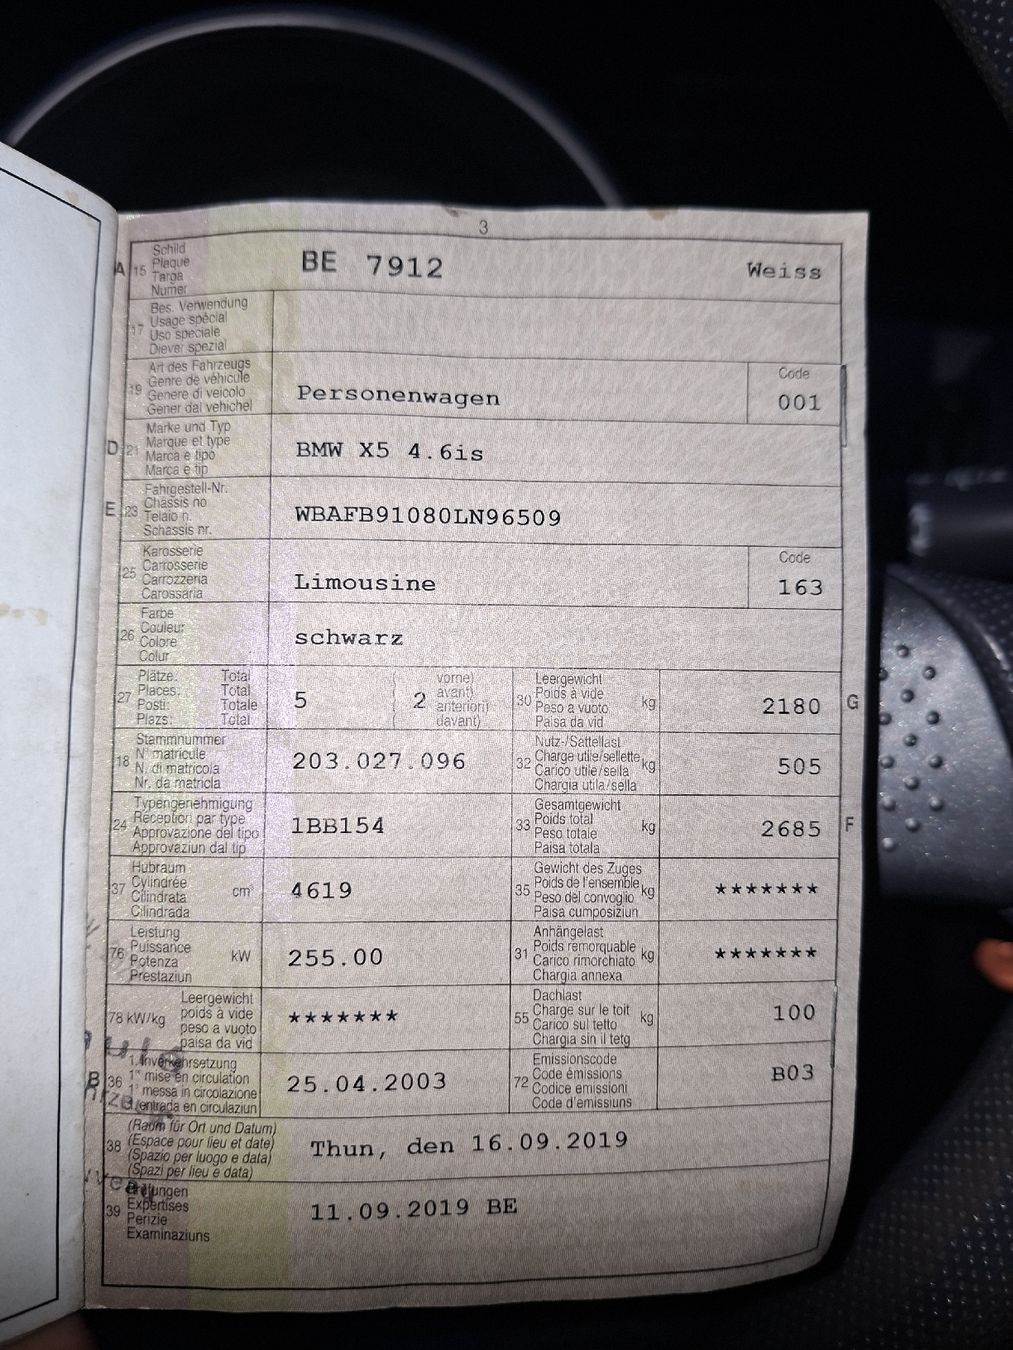 3
A 15 Schild
Plaque
Targa
Numer
BE 7912 Weiss
17 Bes. Verwendung
Usage spécial
Uso speciale
Diever spezial
19 Art des Fahrzeugs
Genre de véhicule
Genere di veicolo
Gener dal vehichel
Personenwagen
Code
001
D 21 Marke und Typ
Marque et type
Marca e tipo
Marca e tip
BMW X5 4.6is
E 23 Fahrgestell-Nr.
Châssis no
Telaio n.
Schassis nr.
WBAFB91080LN96509
25 Karosserie
Carrosserie
Carrozzeria
Carossaria
Limousine
Code
163
26 Farbe
Couleur
Colore
Colur
schwarz
27 Plätze: Total
Places: Total
Posti: Totale
Plazs: Total
5
( 2 vorne)
( avant)
( anteriori)
( davant)
30 Leergewicht
Poids à vide
Peso a vuoto
Paisa da vid
kg
2180 G
18 Stammnummer
N° matricule
N. di matricola
Nr. da matricla
203.027.096
32 Nutz-/Sattellast
Charge utile/sellette
Carico utile/sella
Chargia utila/sella
kg
505
24 Typengenehmigung
Réception par type
Approvazione del tipo
Approvaziun dal tip
1BB154
33 Gesamtgewicht
Poids total
Peso totale
Paisa totala
kg
2685 F
37 Hubraum
Cylindrée
Cilindrata
Cilindrada
cm³
4619
35 Gewicht des Zuges
Poids de l'ensemble
Peso del convoglio
Paisa cumposiziun
kg
*******
76 Leistung
Puissance
Potenza
Prestaziun
kW
255.00
31 Anhängelast
Poids remorquable
Carico rimorchiato
Chargia annexa
kg
*******
78 kW/kg Leergewicht
poids à vide
peso a vuoto
paisa da vid
*******
55 Dachlast
Charge sur le toit
Carico sul tetto
Chargia sin il tetg
kg
100
B 36 1. Inverkehrsetzung
1re mise en circulation
1a messa in circolazione
1. entrada en circulaziun
25.04.2003
72 Emissionscode
Code émissions
Codice emissioni
Code d'emissiuns
B03
38 (Raum für Ort und Datum)
(Espace pour lieu et date)
(Spazio per luogo e data)
(Spazi per lieu e data)
Thun, den 16.09.2019
39 Prüfungen
Expertises
Perizie
Examinaziuns
11.09.2019 BE